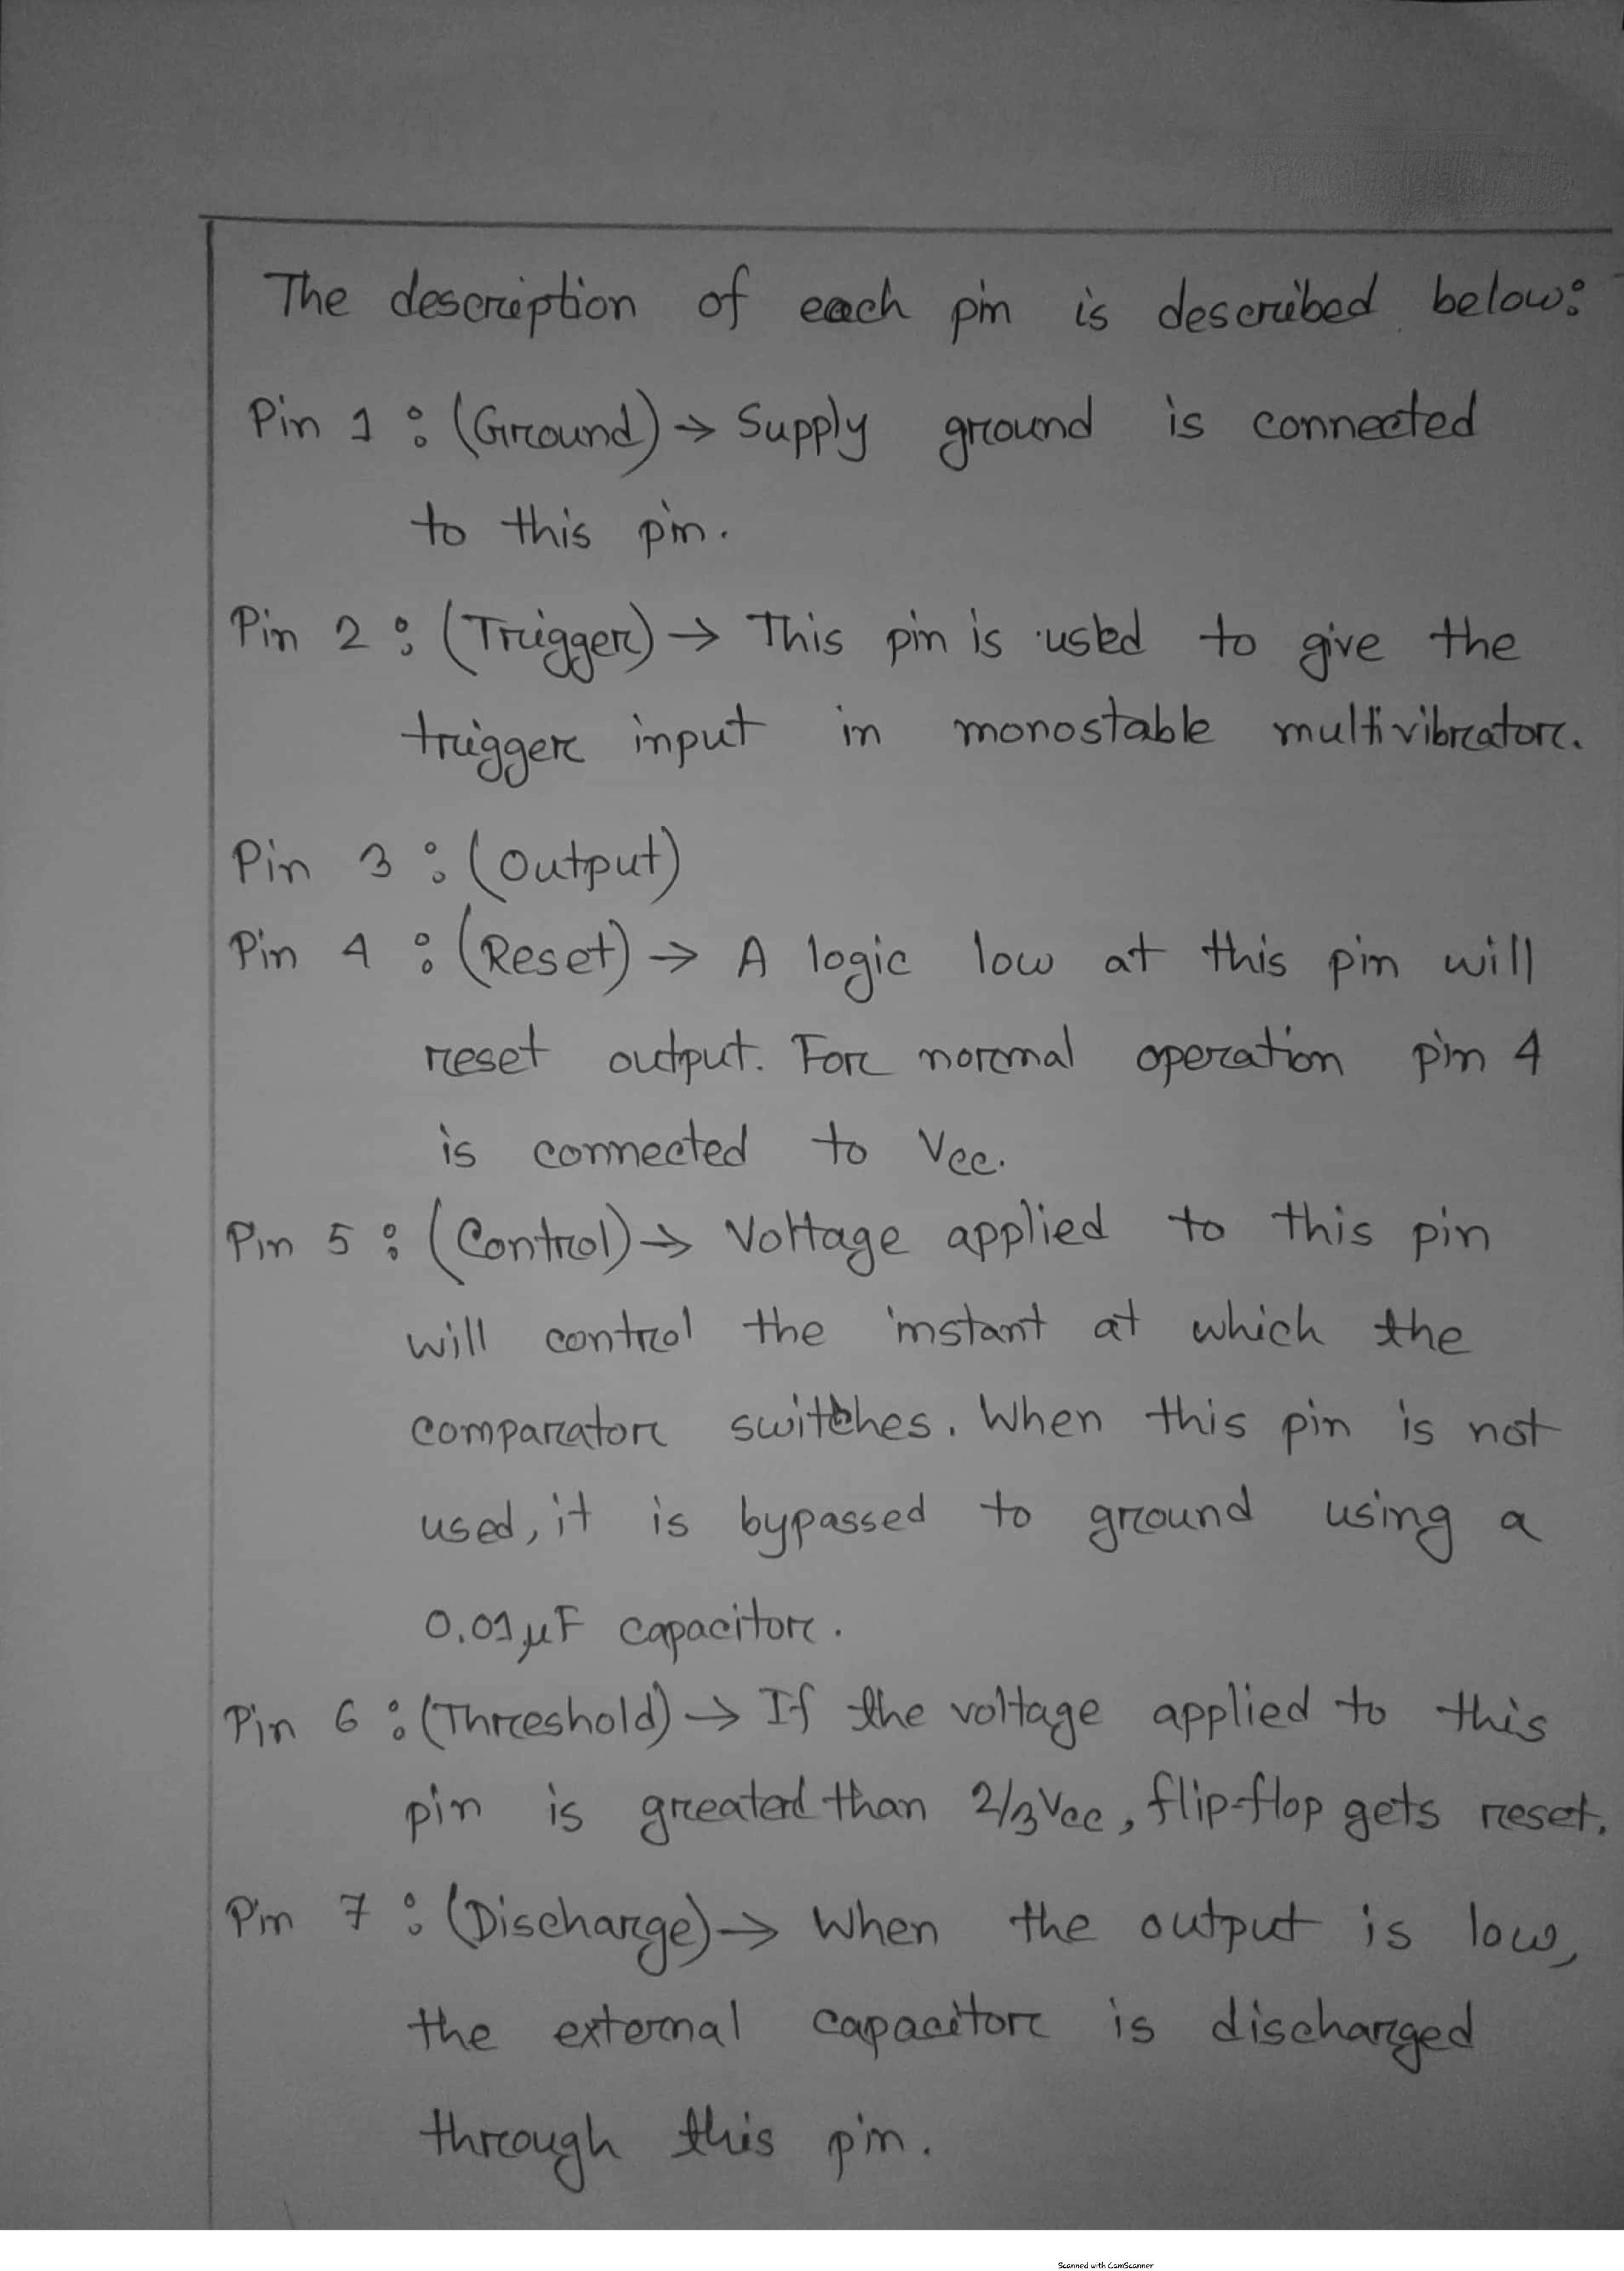 The description of each pin is described below:
Pin 1 : (Ground) → Supply ground is connected
to this pin.
Pin 2 : (Trigger) → This pin is used to give the
trigger input in monostable multivibrator.
Pin 3 : (Output)
Pin 4 : (Reset) → A logic low at this pin will
reset output. For normal operation pin 4
is connected to Vcc.
Pin 5 : (Control) → Voltage applied to this pin
will control the instant at which the
comparator switches. When this pin is not
used, it is bypassed to ground using a
0.01 μF capacitor.
Pin 6 : (Threshold) → If the voltage applied to this
pin is greated than 2/3 Vcc, flip-flop gets reset.
Pin 7 : (Discharge) → When the output is low,
the external capacitor is discharged
through this pin.
Scanned with CamScanner